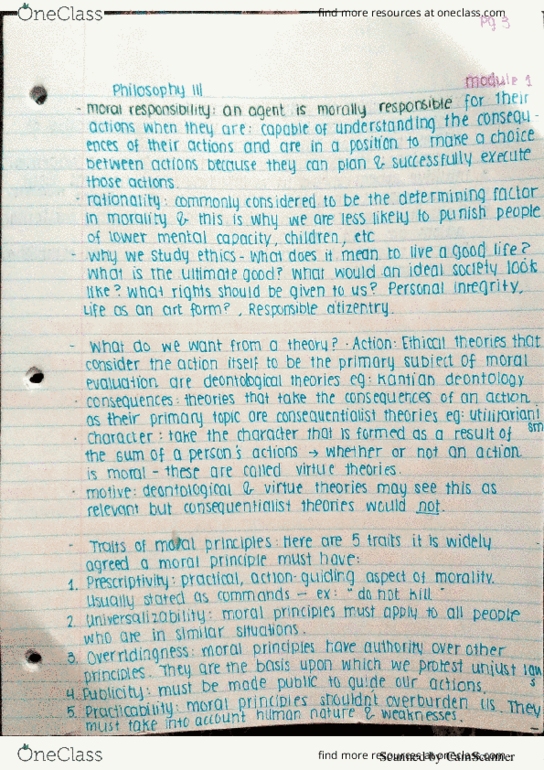 OneClass
find more resources at oneclass.com
pg 3
Philosophy III
module 1
- moral responsibility: an agent is morally responsible for their
actions when they are: capable of understanding the consequ-
ences of their actions and are in a position to make a choice
between actions because they can plan & successfully execute
those actions.
- rationality: commonly considered to be the determining factor
in morality & this is why we are less likely to punish people
of lower mental capacity, children, etc
- why we study ethics - what does it mean to live a good life?
What is the ultimate good? What would an ideal society look
like? What rights should be given to us? Personal integrity,
Life as an art form?, Responsible citizentry.
- What do we want from a theory? · Action: Ethical theories that
consider the action itself to be the primary subject of moral
evaluation are deontological theories eg: Kantian deontology
· consequences: theories that take the consequences of an action
as their primary topic are consequentialist theories eg: utilitariani
sm
· character: take the character that is formed as a result of
the sum of a person's actions → whether or not an action
is moral - these are called virtue theories.
· motive: deontological & virtue theories may see this as
relevant but consequentialist theories would not.
- Traits of moral principles: Here are 5 traits it is widely
agreed a moral principle must have:
1. Prescriptivity: practical, action-guiding aspect of morality.
Usually stated as commands - ex: "do not kill"
2. Universalizability: moral principles must apply to all people
who are in similar situations.
3. Overridingness: moral principles have authority over other
principles. They are the basis upon which we protest unjust law
s
4. Publicity: must be made public to guide our actions.
5. Practicability: moral principles shouldn't overburden us. They
must take into account human nature & weaknesses.
OneClass
find more resources at oneclass.com
Scanned by CamScanner